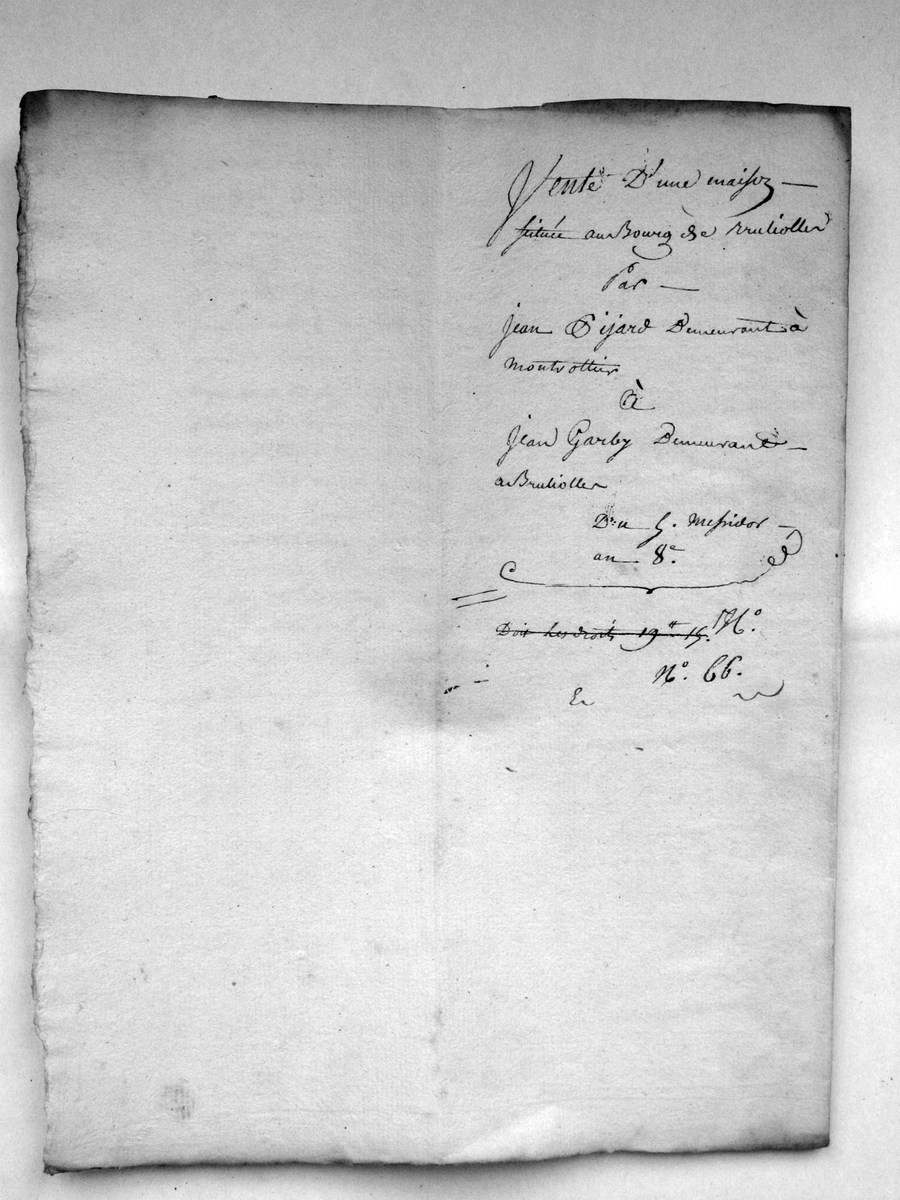 Vente D'une maison —
située au Bourg de Brulioller
Par —
Jean Pijard Demeurant à
Montrottier
à
Jean Garby Demeurant —
a Brulioller
Du 5. Messidor —
an 8.e
Doit les droits 19# 15.s
N.o 66.